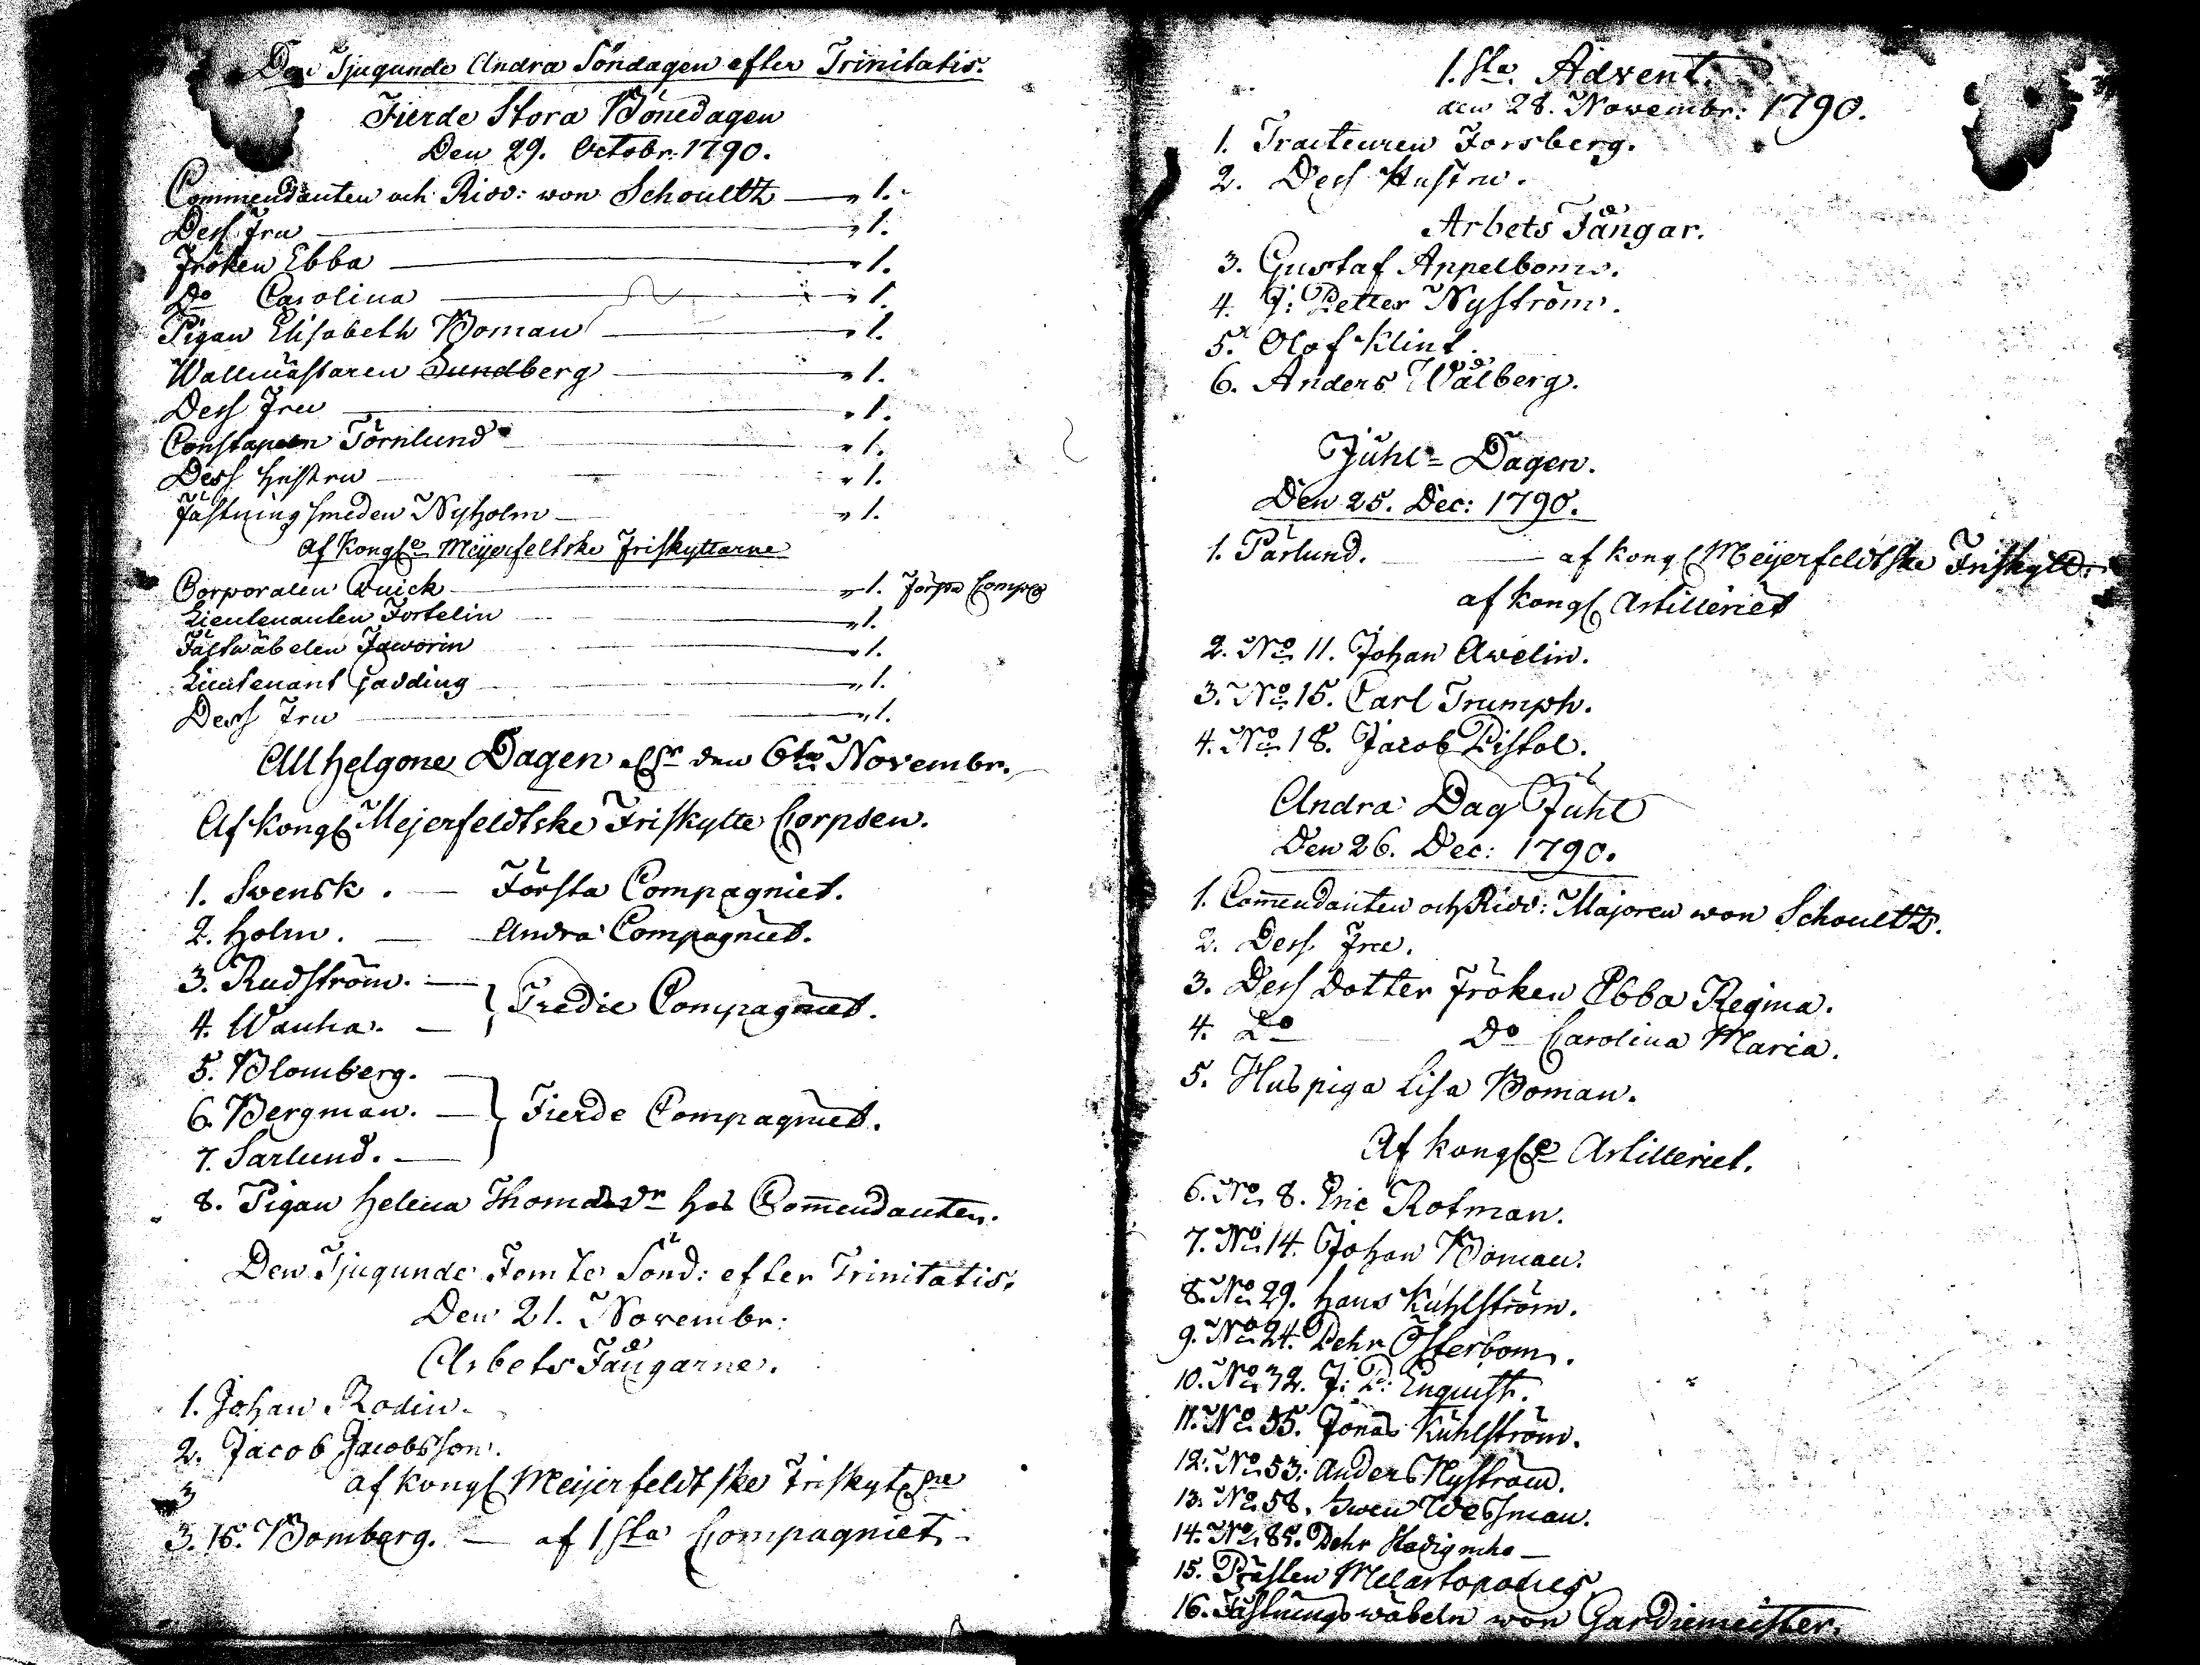 Den Tjugunde Andra Söndagen efter Trinitatis.
Fierde Stora Bönedagen
Den 29. Octobr. 1790.
Commendanten och Ridd: von Schoultz — " 1.
Dess Fru — " 1.
Fröken Ebba — " 1.
Do Carolina — " 1.
Pigan Elisabeth Boman — " 1.
Wallmästaren Sundberg — " 1.
Dess Fru — " 1.
Constapeln Törnlund — " 1.
Dess Hustru — " 1.
Fästningssmeden Nyholm — " 1.
Af Kongle Meijerfeltske Friskyttarne
Corporalen Quick — " 1. Förste Comp
Lieutenanten Fortelin — " 1.
Fältwäbelen Jaworin — " 1.
Lieutenant Gadding — " 1.
Dess Fru — " 1.
Allhelgone Dagen den 6te Novembr.
Af Kongl Mejerfeldtske Friskytte Corpsen.
1. Svensk. — Första Compagniet.
2. Holm. — Andra Compagniet.
3. Rudström. —
4. Wanha. — } Tredie Compagniet.
5. Blomberg. —
6. Bergman. — } Fierde Compagniet.
7. Sarlund. —
8. Pigan Helena Thomasdr hos Com̄endanten.
Den Tjugunde Femte Sönd: efter Trinitatis.
Den 21. Novembr:
Arbets Fångarne.
1. Johan Rodin.
2. Jacob Jacobsson.
3
af Kongl Meijerfeldtske Friskytt
3. 15. Bomberg. — af 1sta Compagniet.
1.sta Advent.
den 28. Novembr: 1790.
1. Tracteuren Forsberg.
2. Dess Hustru.
Arbets Fångar.
3. Gustaf Appelbom.
4. J: Petter Nyström.
5. Olof Klint.
6. Anders Wålberg.
Juhl-Dagen.
Den 25. Dec: 1790.
1. Pärlund. — af Kongl Meijerfeldtske Friskytt:
af Kongl Artilleriet
2. No 11. Johan Awelin.
3. No 15. Carl Trumph.
4. No 18. Jacob Pistol.
Andra Dag Juhl
Den 26. Dec: 1790.
1. Com̄endanten och Ridd: Majoren von Schoultz.
2. Dess Fru.
3. Dess Dotter Fröken Ebba Regina.
4. Do Do Carolina Maria.
5. Huspiga Lisa Boman.
Af Kongle Artilleriet.
6. No 8. Eric Rotman.
7. No 14. Johan Boman.
8. No 29. Hans Kuhlström.
9. No 24. Pehr Österbom.
10. No 32. J: P: Enquist.
11. No 35. Jonas Kuhlström.
12. No 53. Anders Nyström.
13. No 58. Swen Wessman.
14. No 85. Pehr
15. Prästen
16. Fästningswäbeln von Gardiemeister.